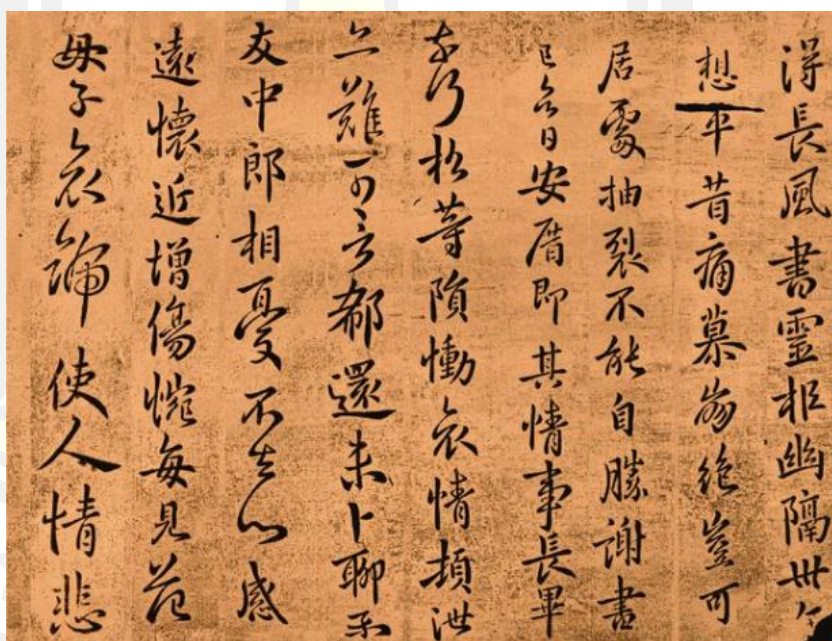 得長風書靈柩幽隔卅
想平昔痛慕崩絕豈可
居處抽裂不能自勝謝書
已令日安厝即其情事長畢
奈何松等隕慟哀情頓泄
亦難可言郗還未卜聊示
友中郎相憂不去心感
遠懷近增傷惋每見范
母子哀號使人情悲